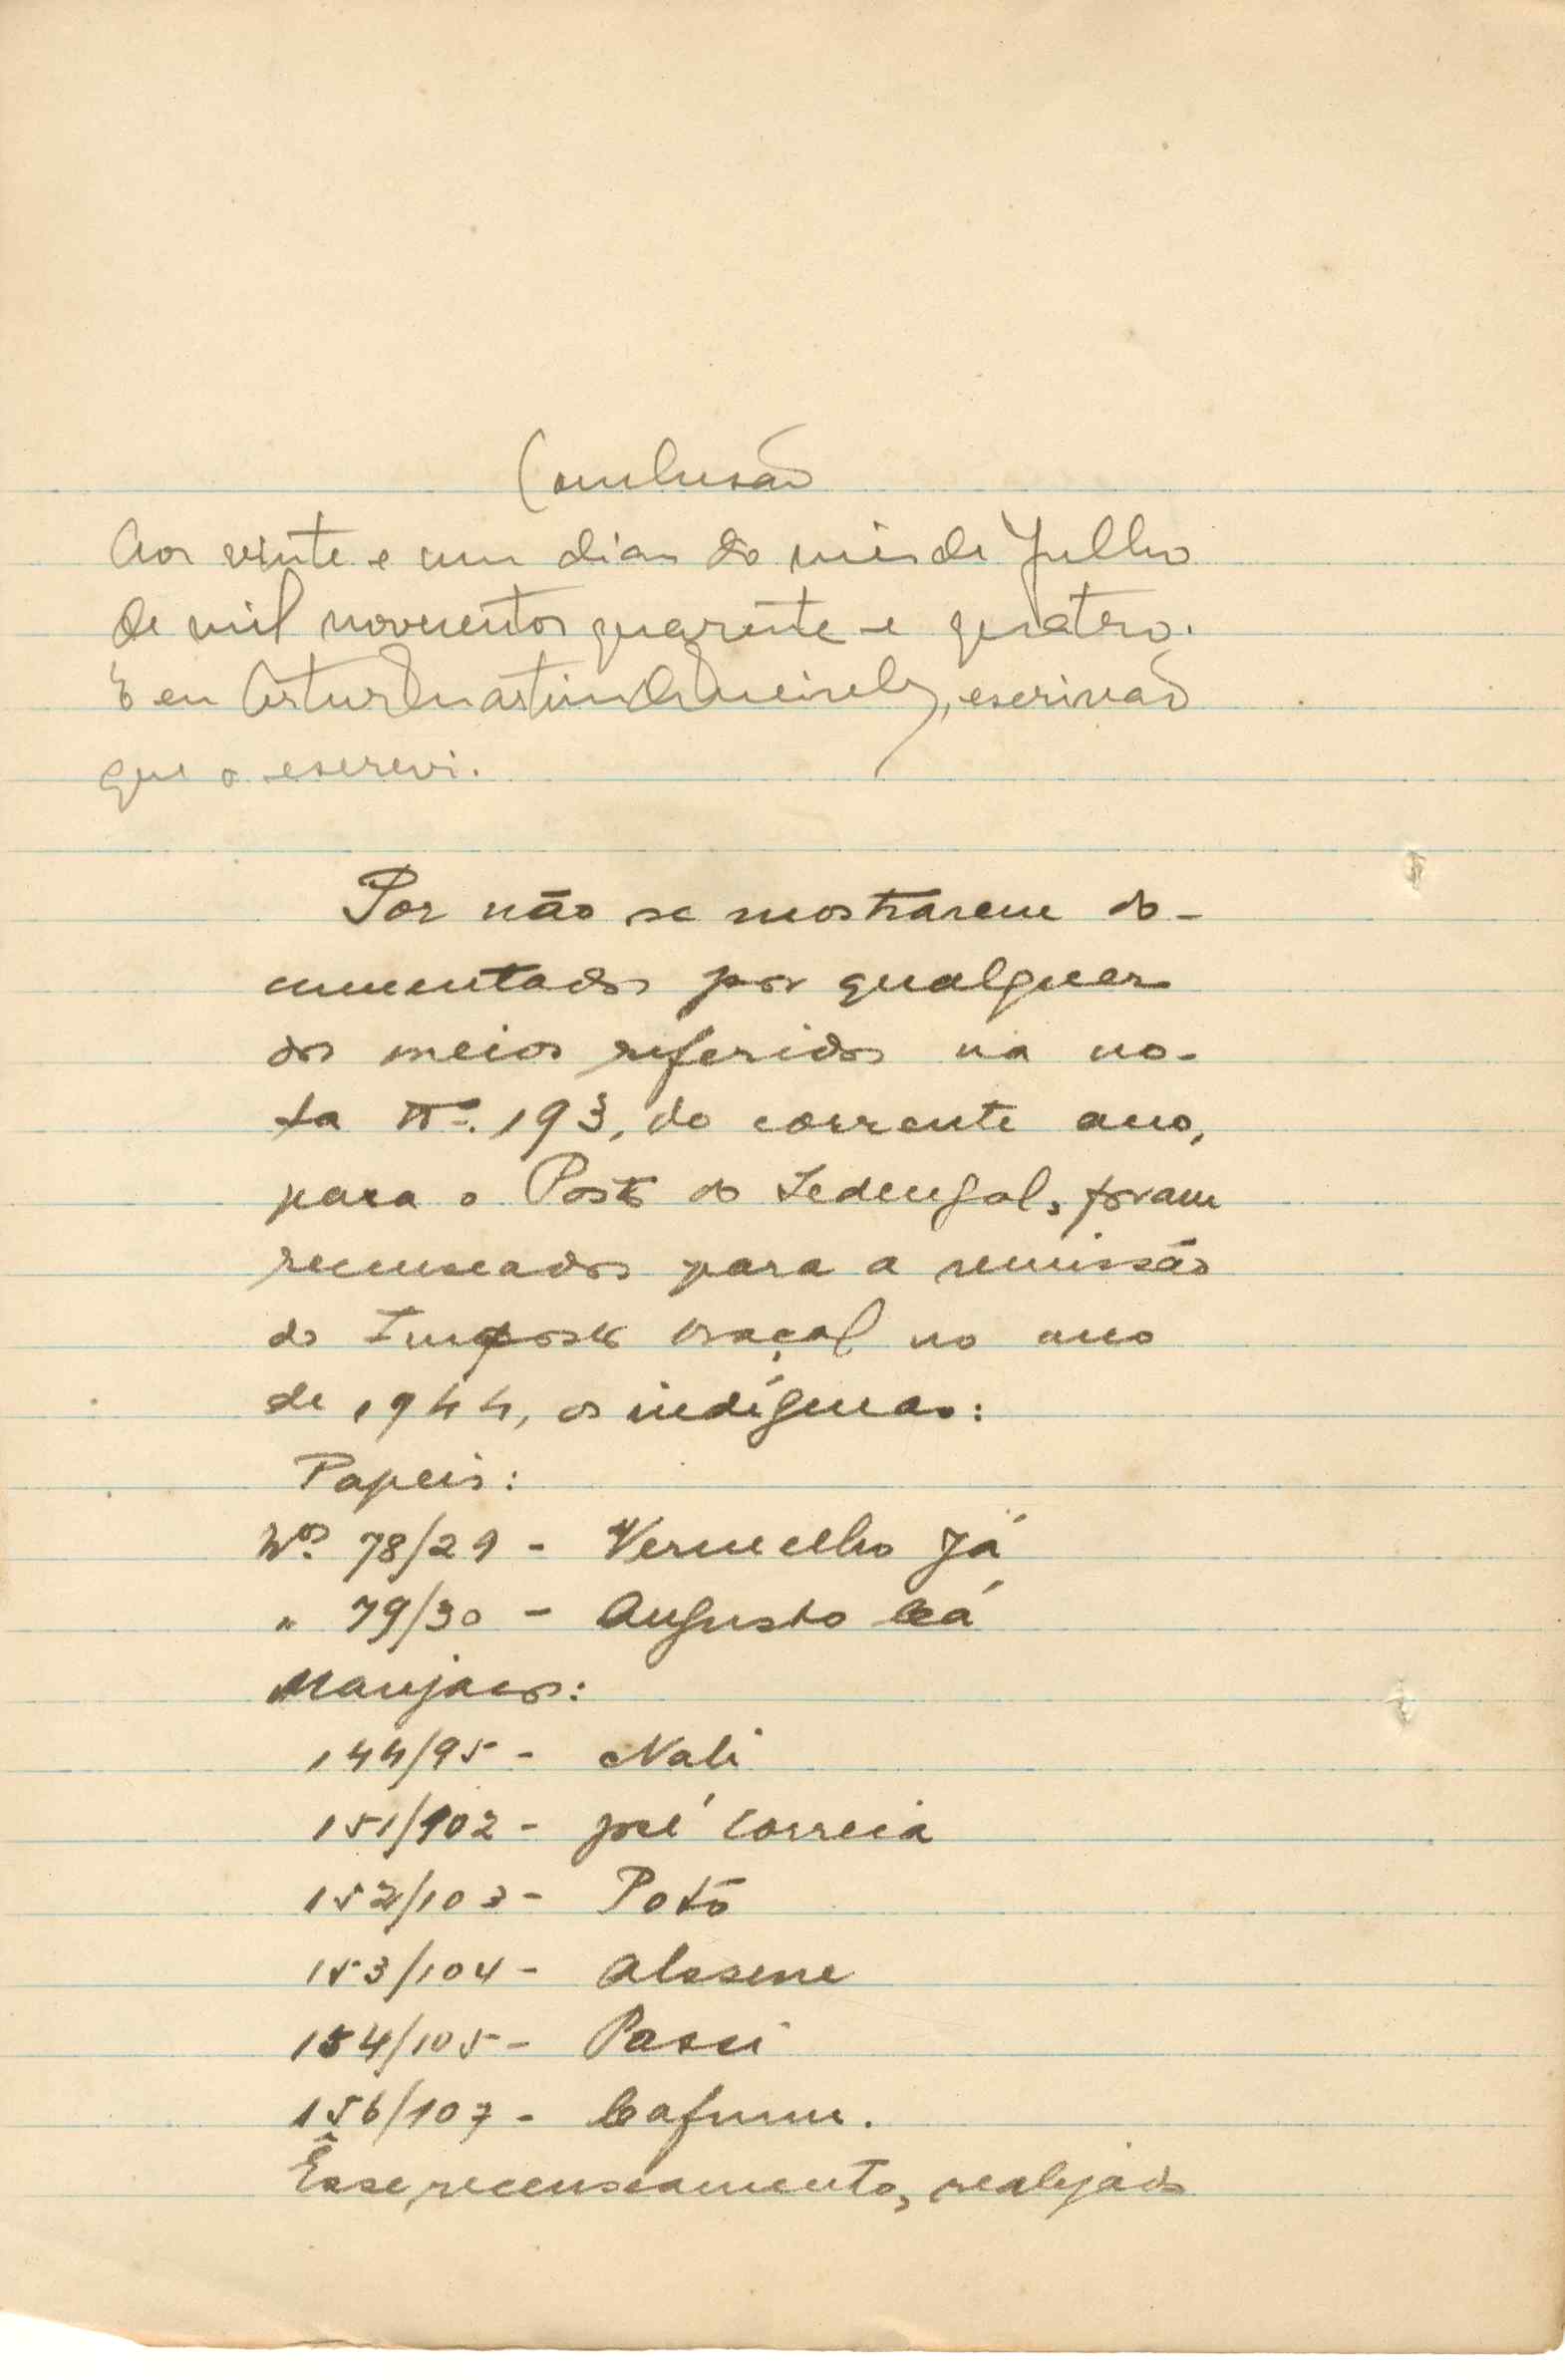 Conclusão
Aos vinte e um dias do mês de Julho
de mil novecentos quarenta e quatro.
E eu Artur Martins de Meireles, escrivão
que o escrevi.
Por não se mostrarem do-
cumentados por qualquer
dos meios referidos na no-
ta Nº. 193, do corrente ano,
para o Posto do Sedengal, foram
recenseados para a remissão
do Imposto braçal no ano
de 1944, os indígenas:
Papeis:
Nos. 78/29 - Vermelho Já
" 79/30 - Augusto Cá
Manjacos:
144/95 - Nali
151/102 - José Correia
152/103 - Potô
153/104 - Alssene
154/105 - Passi
156/107 - Cafum.
Êsse recenseamento, realizado